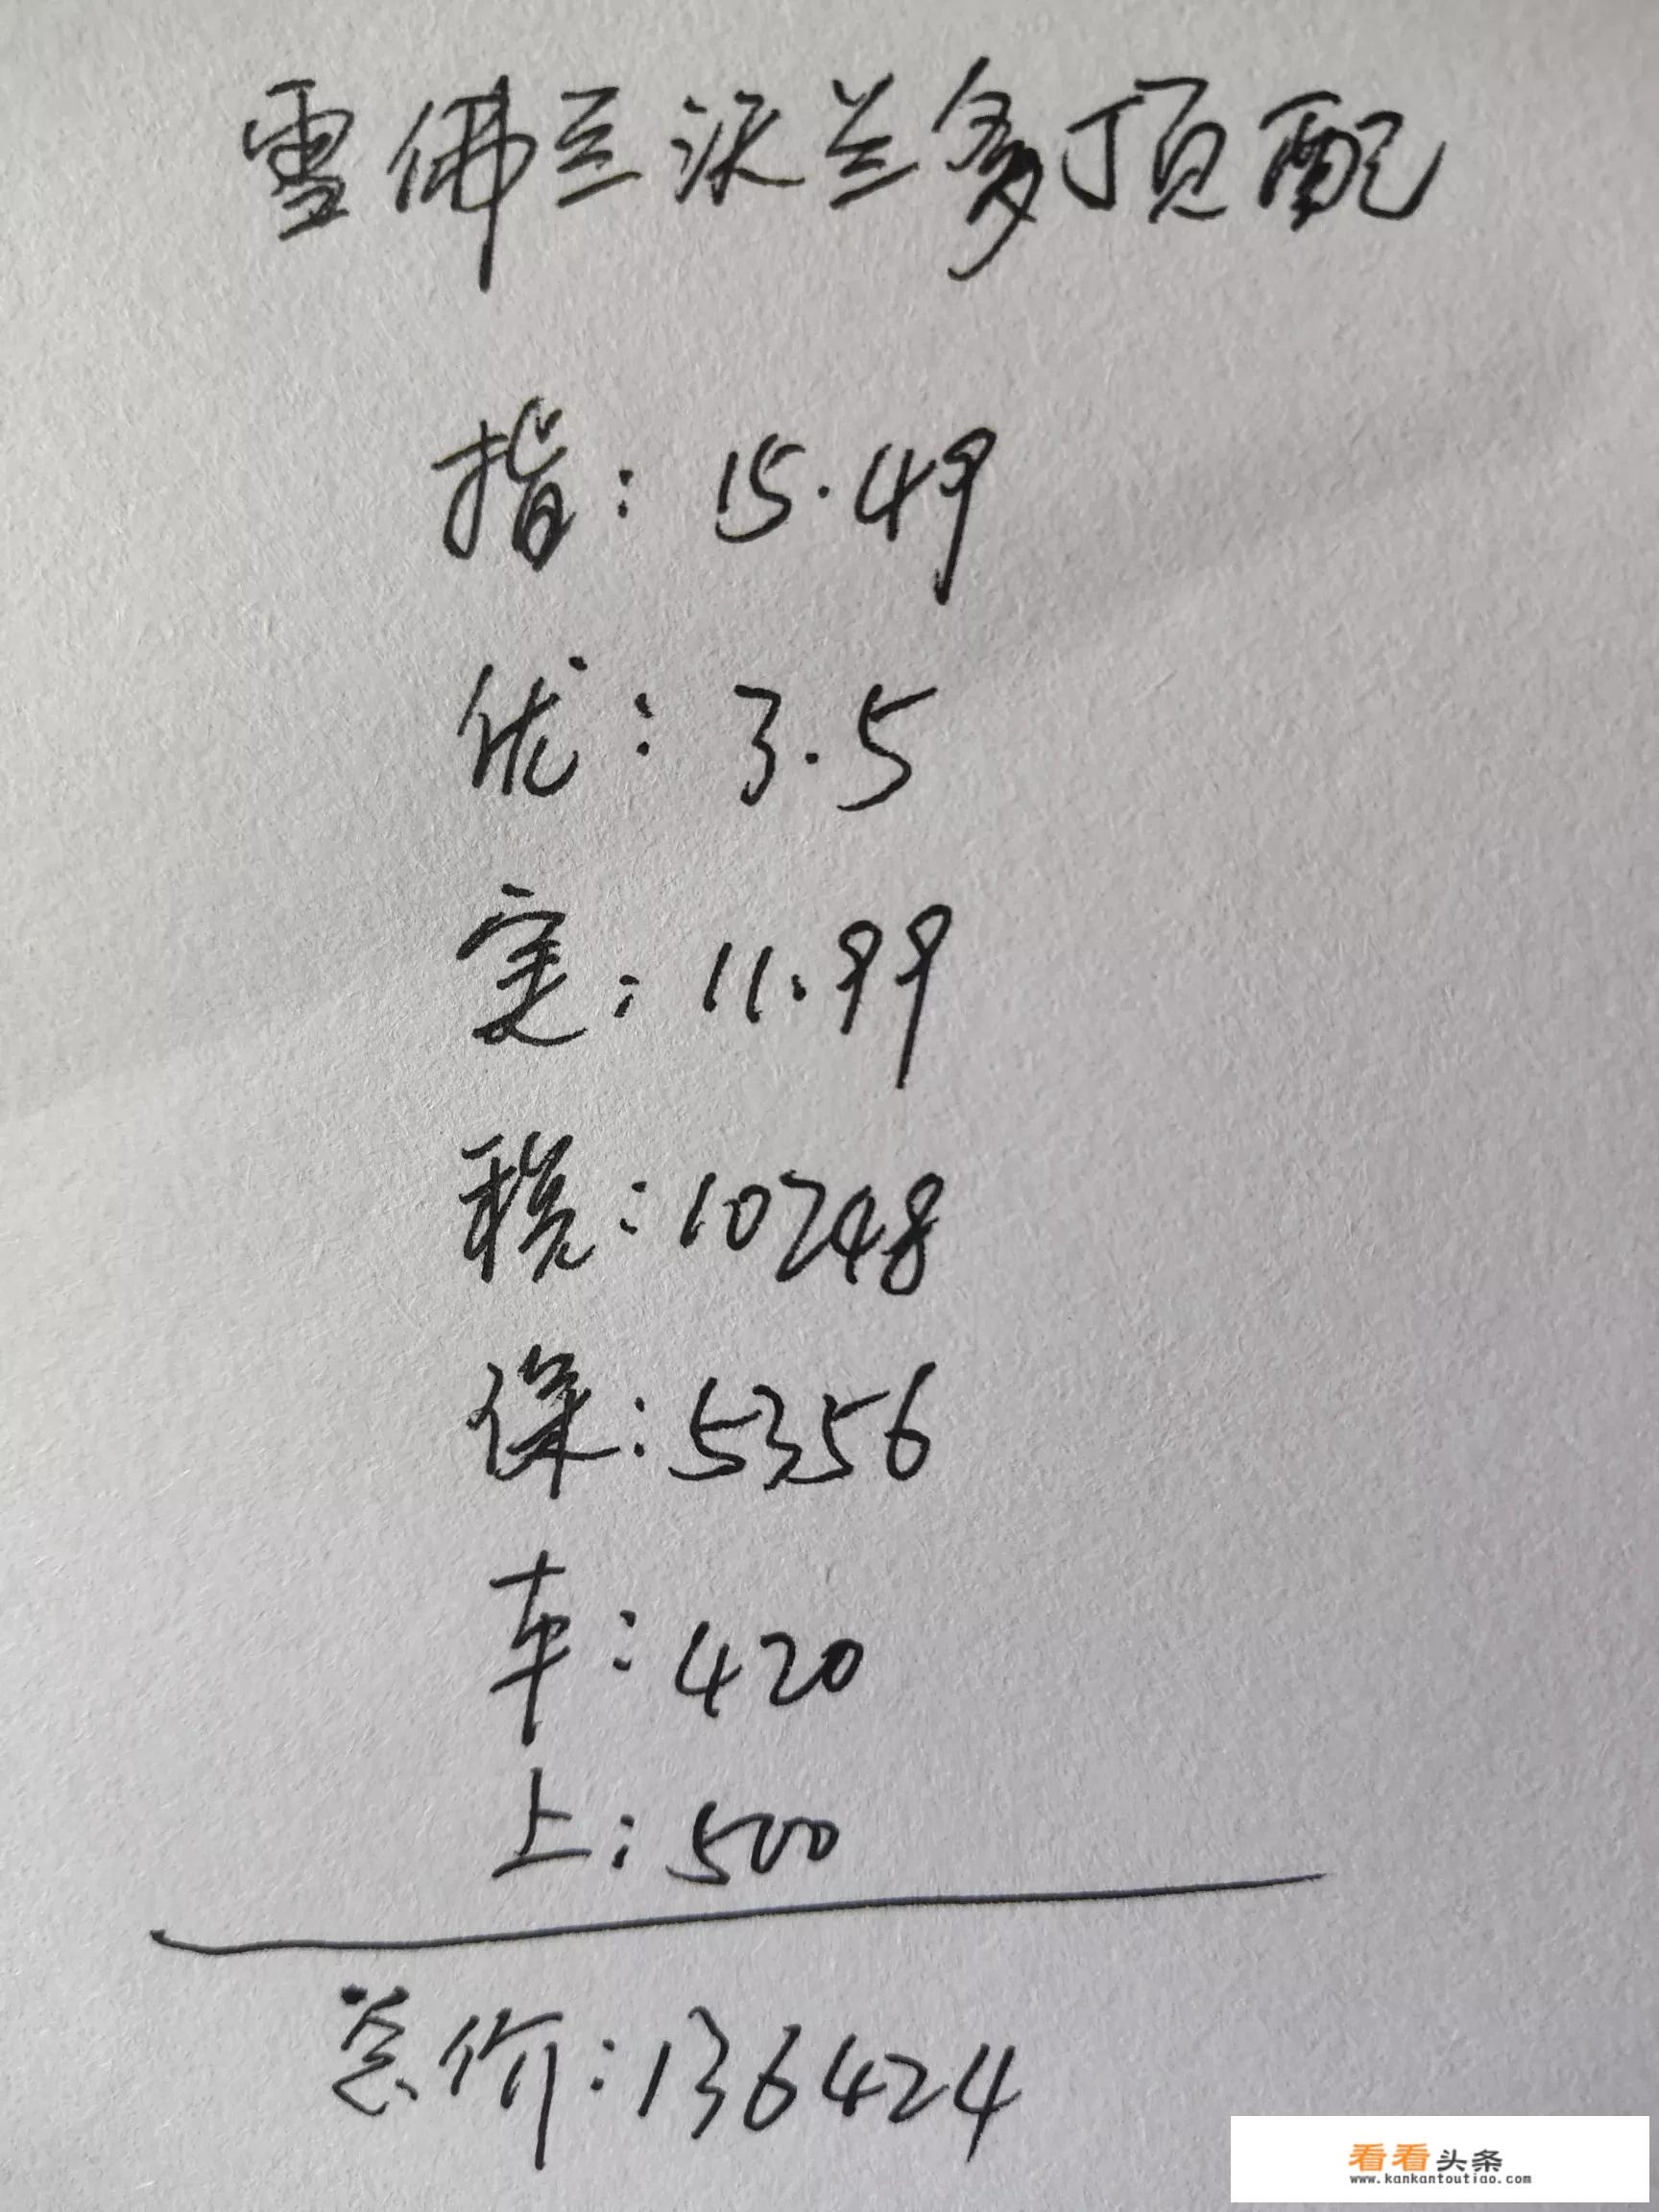 雪佛兰沃兰多顶配
指：15.49
优：3.5
实：11.99
税：10248
保：5356
车：420
上：500
总价：136424
看看头条
www.kankantoutiao.com